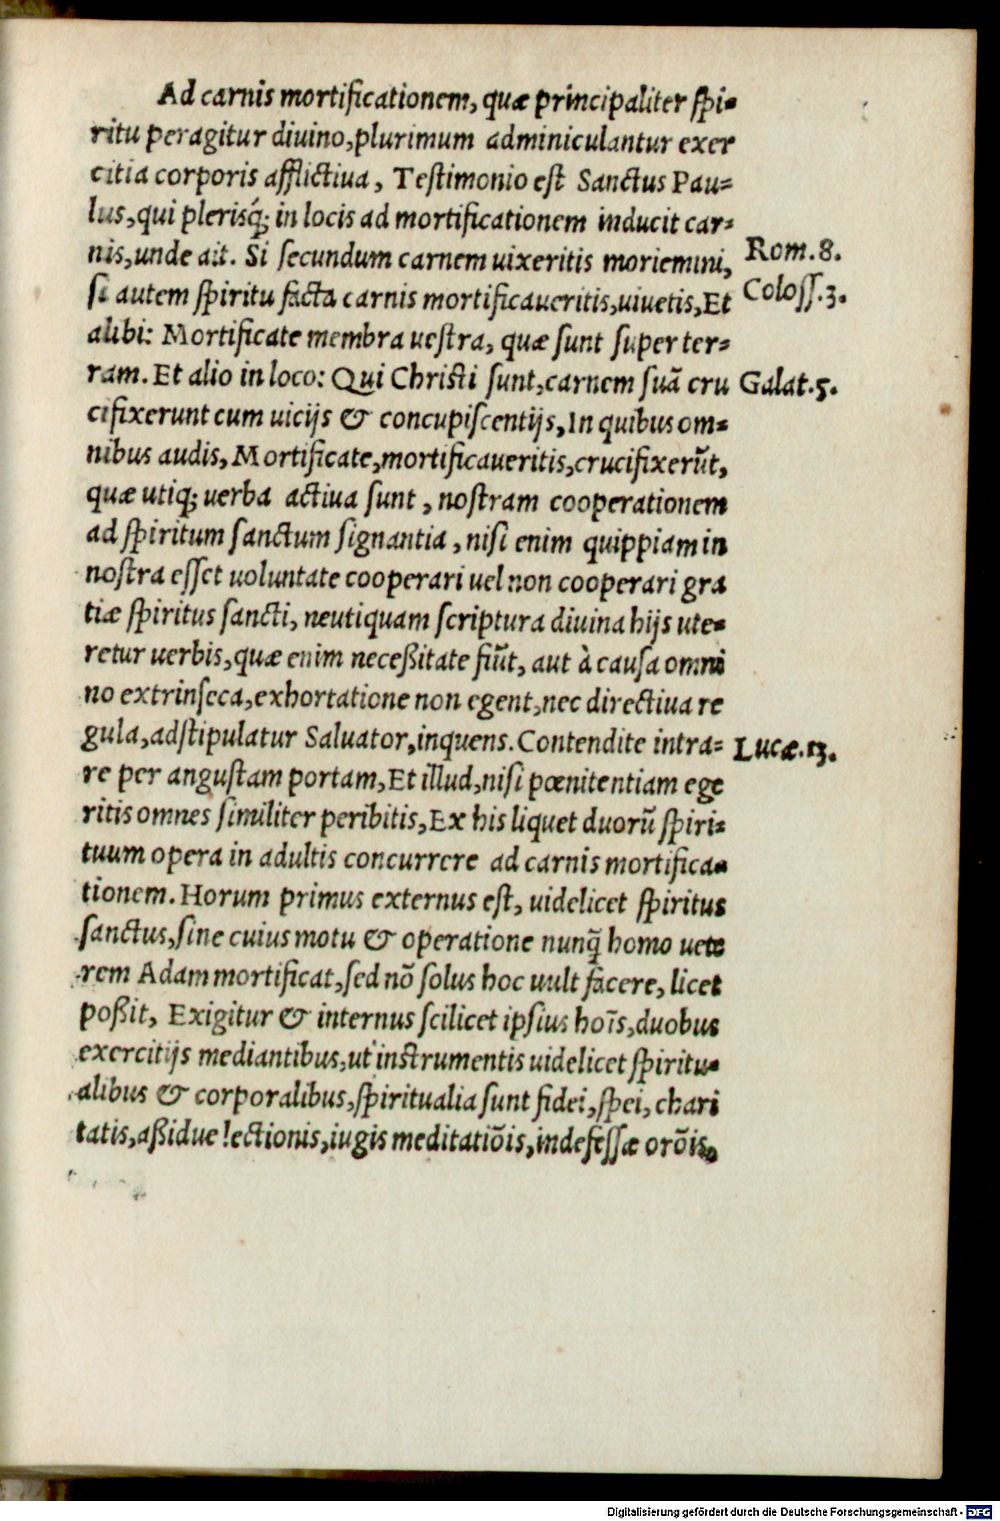 Ad carnis mortificationem, quæ principaliter ſpi-
ritu peragitur diuino, plurimum adminiculantur exer
citia corporis afflictiua, Teſtimonio eſt Sanctus Pau-
lus, qui pleriſq́; in locis ad mortificationem inducit car-
nis, unde ait. Si ſecundum carnem uixeritis moriemini,
Rom. 8.
ſi autem ſpiritu facta carnis mortificaueritis, uiuetis, Et
Coloſſ. 3.
alibi: Mortificate membra ueſtra, quæ ſunt ſuper ter-
ram. Et alio in loco: Qui Chriſti ſunt, carnem ſuā cru
Galat. 5.
cifixerunt cum uicijs & concupiſcentijs, In quibus om-
nibus audis, Mortificate, mortificaueritis, crucifixerūt,
quæ utiq; uerba actiua ſunt, noſtram cooperationem
ad ſpiritum ſanctum ſignantia, niſi enim quippiam in
noſtra eſſet uoluntate cooperari uel non cooperari gra
tiæ ſpiritus ſancti, neutiquam ſcriptura diuina hijs ute-
retur uerbis, quæ enim neceßitate fiūt, aut à cauſa omni
no extrinſeca, exhortatione non egent, nec directiua re
gula, adſtipulatur Saluator, inquens. Contendite intra-
Lucæ. 13.
re per anguſtam portam, Et illud, niſi pœnitentiam ege
ritis omnes ſimiliter peribitis, Ex his liquet duorū ſpiri-
tuum opera in adultis concurrere ad carnis mortifica-
tionem. Horum primus externus eſt, uidelicet ſpiritus
ſanctus, ſine cuius motu & operatione nunq̄ homo uete
rem Adam mortificat, ſed nō ſolus hoc uult facere, licet
poßit, Exigitur & internus ſcilicet ipſius hoīs, duobus
exercitijs mediantibus, ut inſtrumentis uidelicet ſpiritu-
alibus & corporalibus, ſpiritualia ſunt fidei, ſpei, chari
tatis, aßidue lectionis, iugis meditatiōis, indefeſſæ orōis,
Digitalisierung gefördert durch die Deutsche Forschungsgemeinschaft - DFG